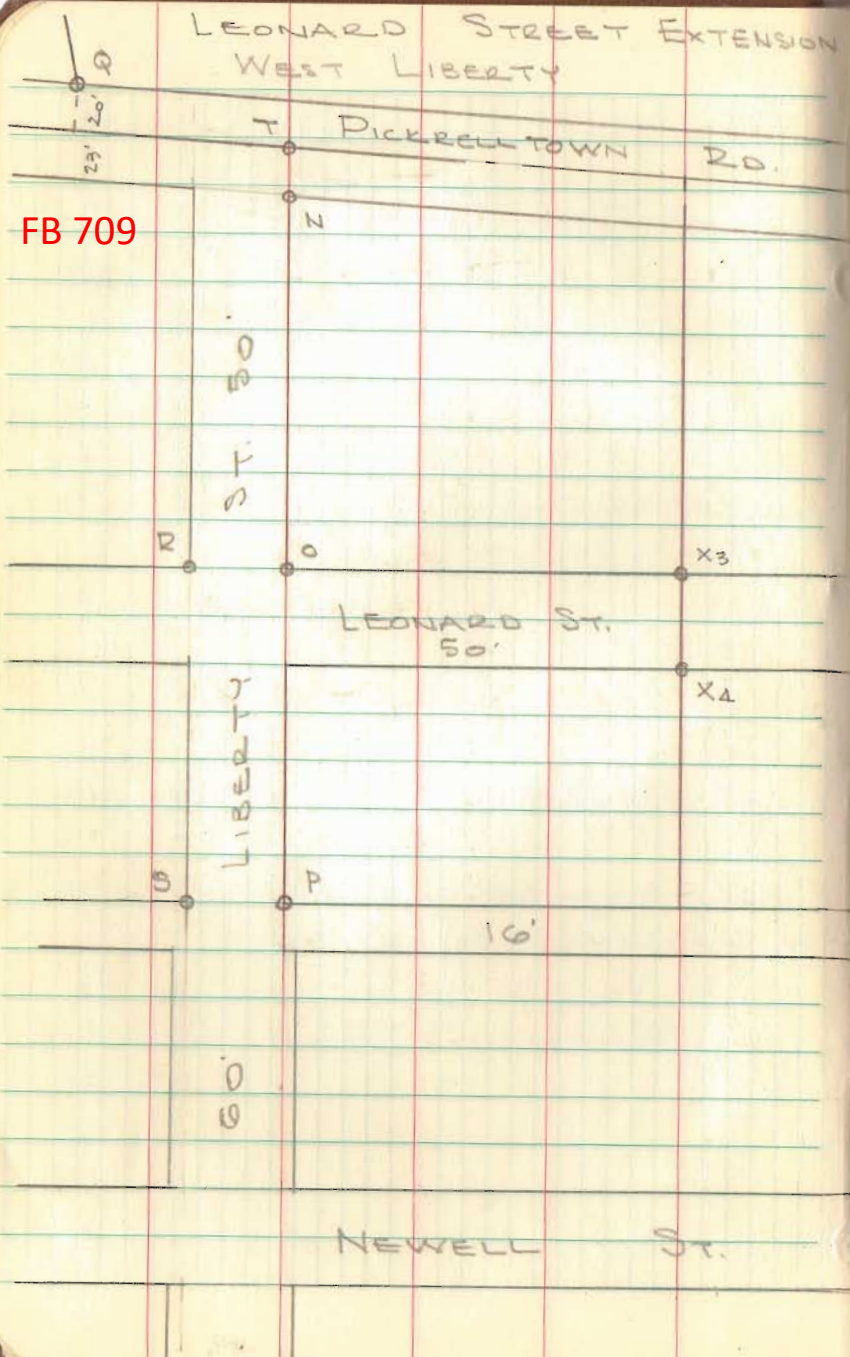 LEONARD STREET EXTENSION
WEST LIBERTY
Q
20'
T
PICKRELLTOWN RD.
23'
N
FB 709
ST. 50'
R
O
X3
LEONARD ST.
50'
X4
LIBERTY
S
P
16'
60'
NEWELL ST.